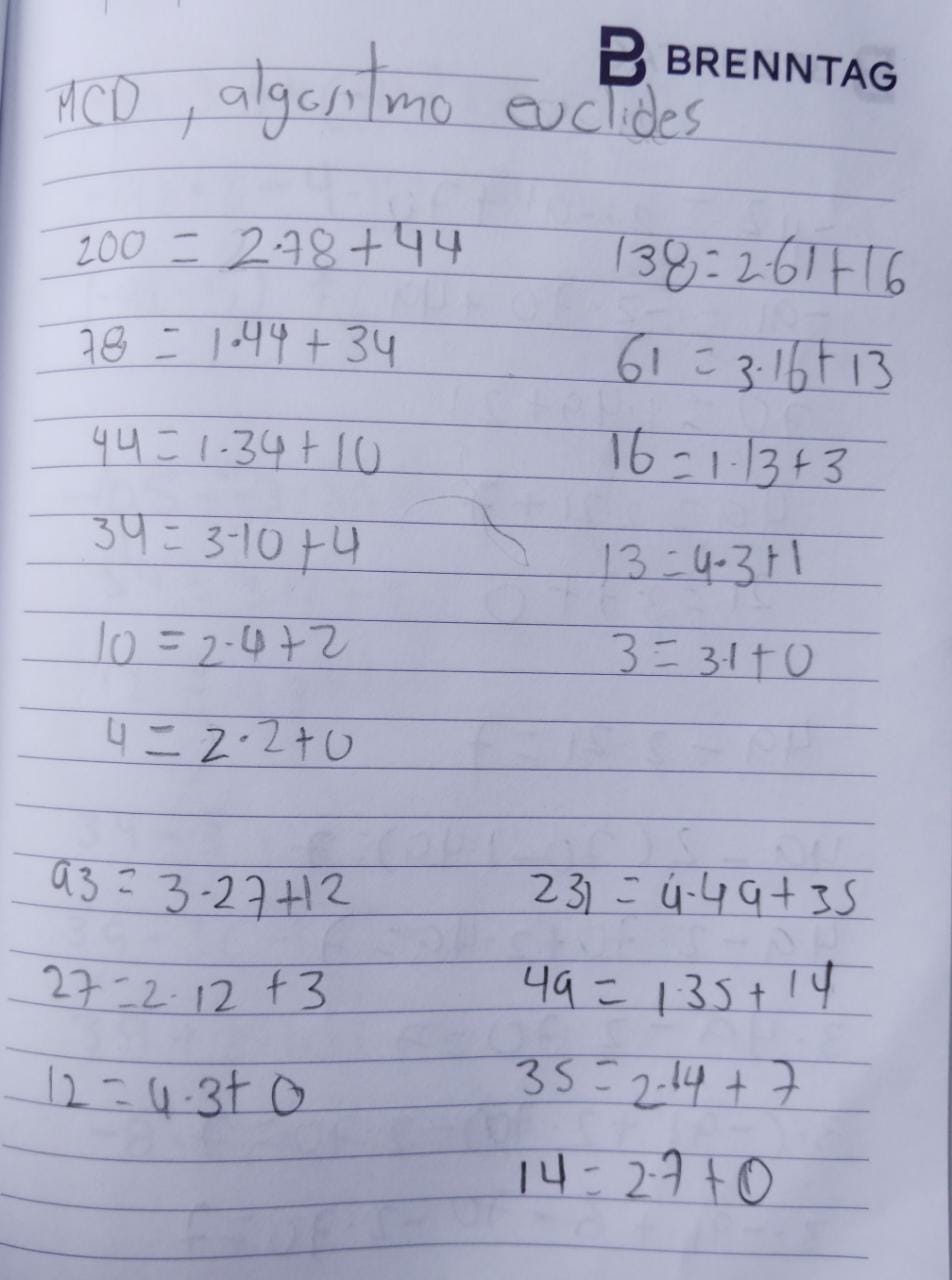 BRENNTAG
MCD, algoritmo euclides
200 = 2·78+44
78 = 1·44 + 34
44 = 1·34 + 10
34 = 3·10 + 4
10 = 2·4+2
4 = 2·2+0
138 = 2·61+16
61 = 3·16+13
16 = 1·13+3
13 = 4·3+1
3 = 3·1+0
93 = 3·27+12
27 = 2·12 +3
12 = 4·3+ 0
231 = 4·49+35
49 = 1·35+14
35 = 2·14 + 7
14 = 2·7 + 0